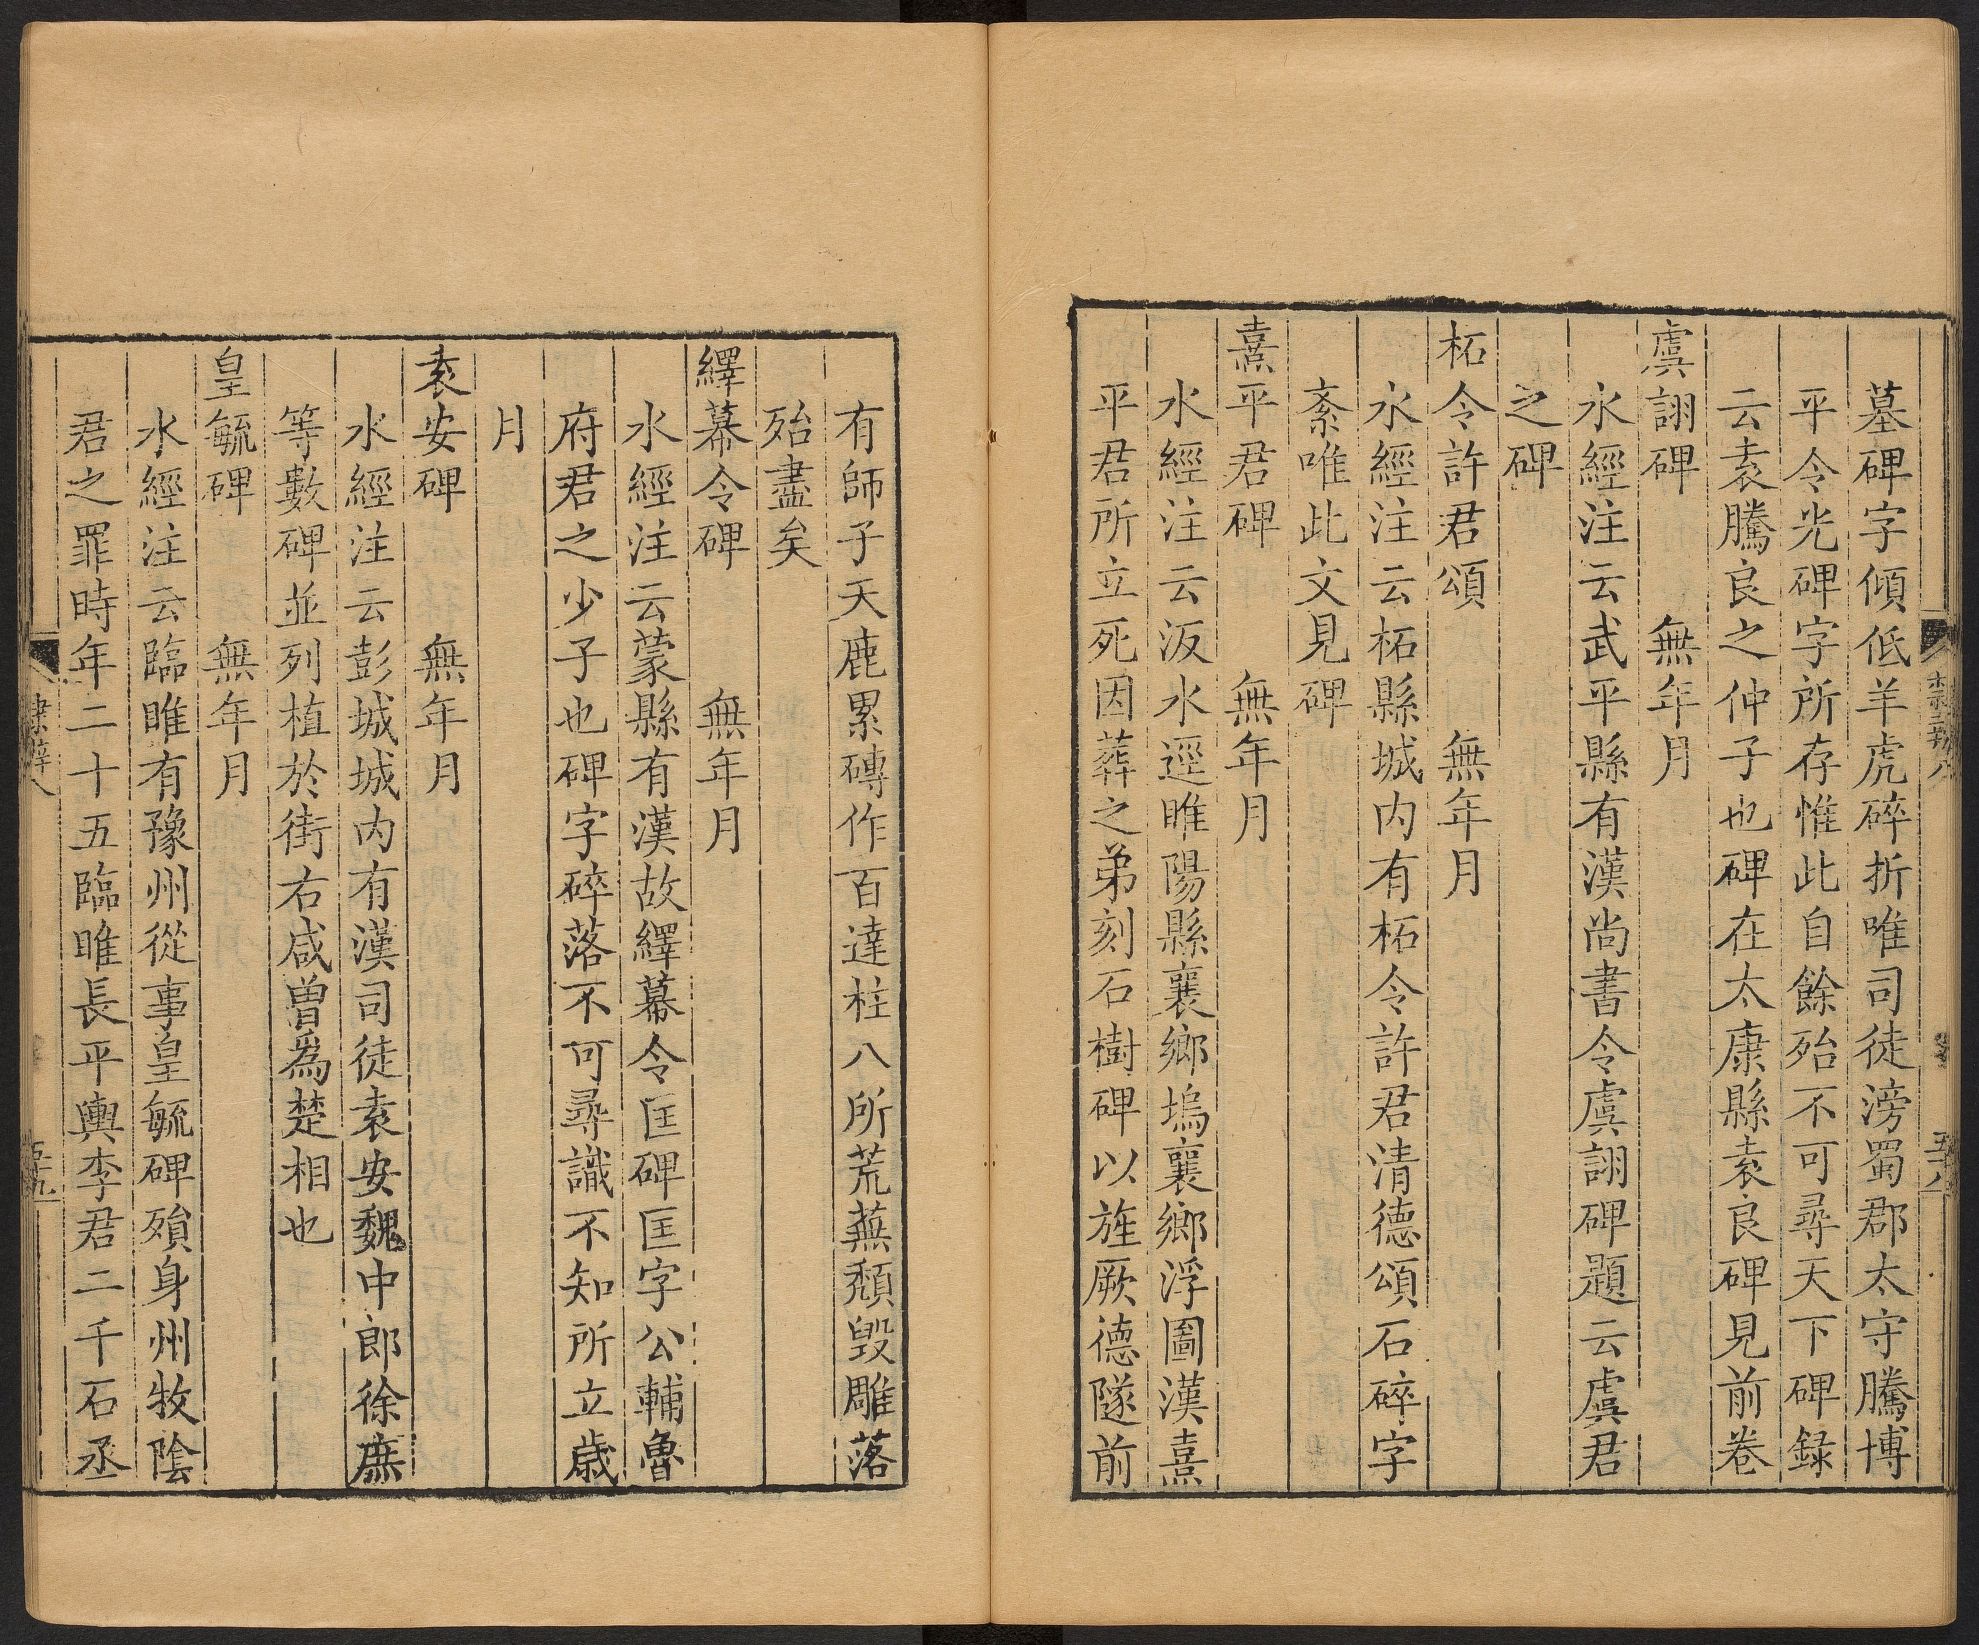 墓碑字傾低羊虎碎折唯司徒滂蜀郡太守騰博
平令光碑字所存惟此自餘殆不可尋天下碑録
云袁騰良之仲子也碑在太康縣袁良碑見前卷
虞詡碑 無年月
水經注云武平縣有漢尚書令虞詡碑題云虞君
之碑
柘令許君頌 無年月
水經注云柘縣城内有柘令許君清德頌石碎字
紊唯此文見碑
熹平君碑 無年月
水經注云汳水逕睢陽縣襄鄉塢襄鄉浮圖漢熹
平君所立死因葬之弟刻石樹碑以旌厥德隧前
有師子天鹿累磚作百達柱八所荒蕪頹毁雕落
殆盡矣
繹幕令碑 無年月
水經注云蒙縣有漢故繹幕令匡碑匡字公輔魯
府君之少子也碑字碎落不可尋識不知所立歲
月
袁安碑 無年月
水經注云彭城城内有漢司徒袁安魏中郎徐庶
等數碑並列植於街右咸曾為楚相也
皇毓碑 無年月
水經注云臨睢有豫州從事皇毓碑殞身州牧陰
君之罪時年二十五臨睢長平輿李君二千石丞